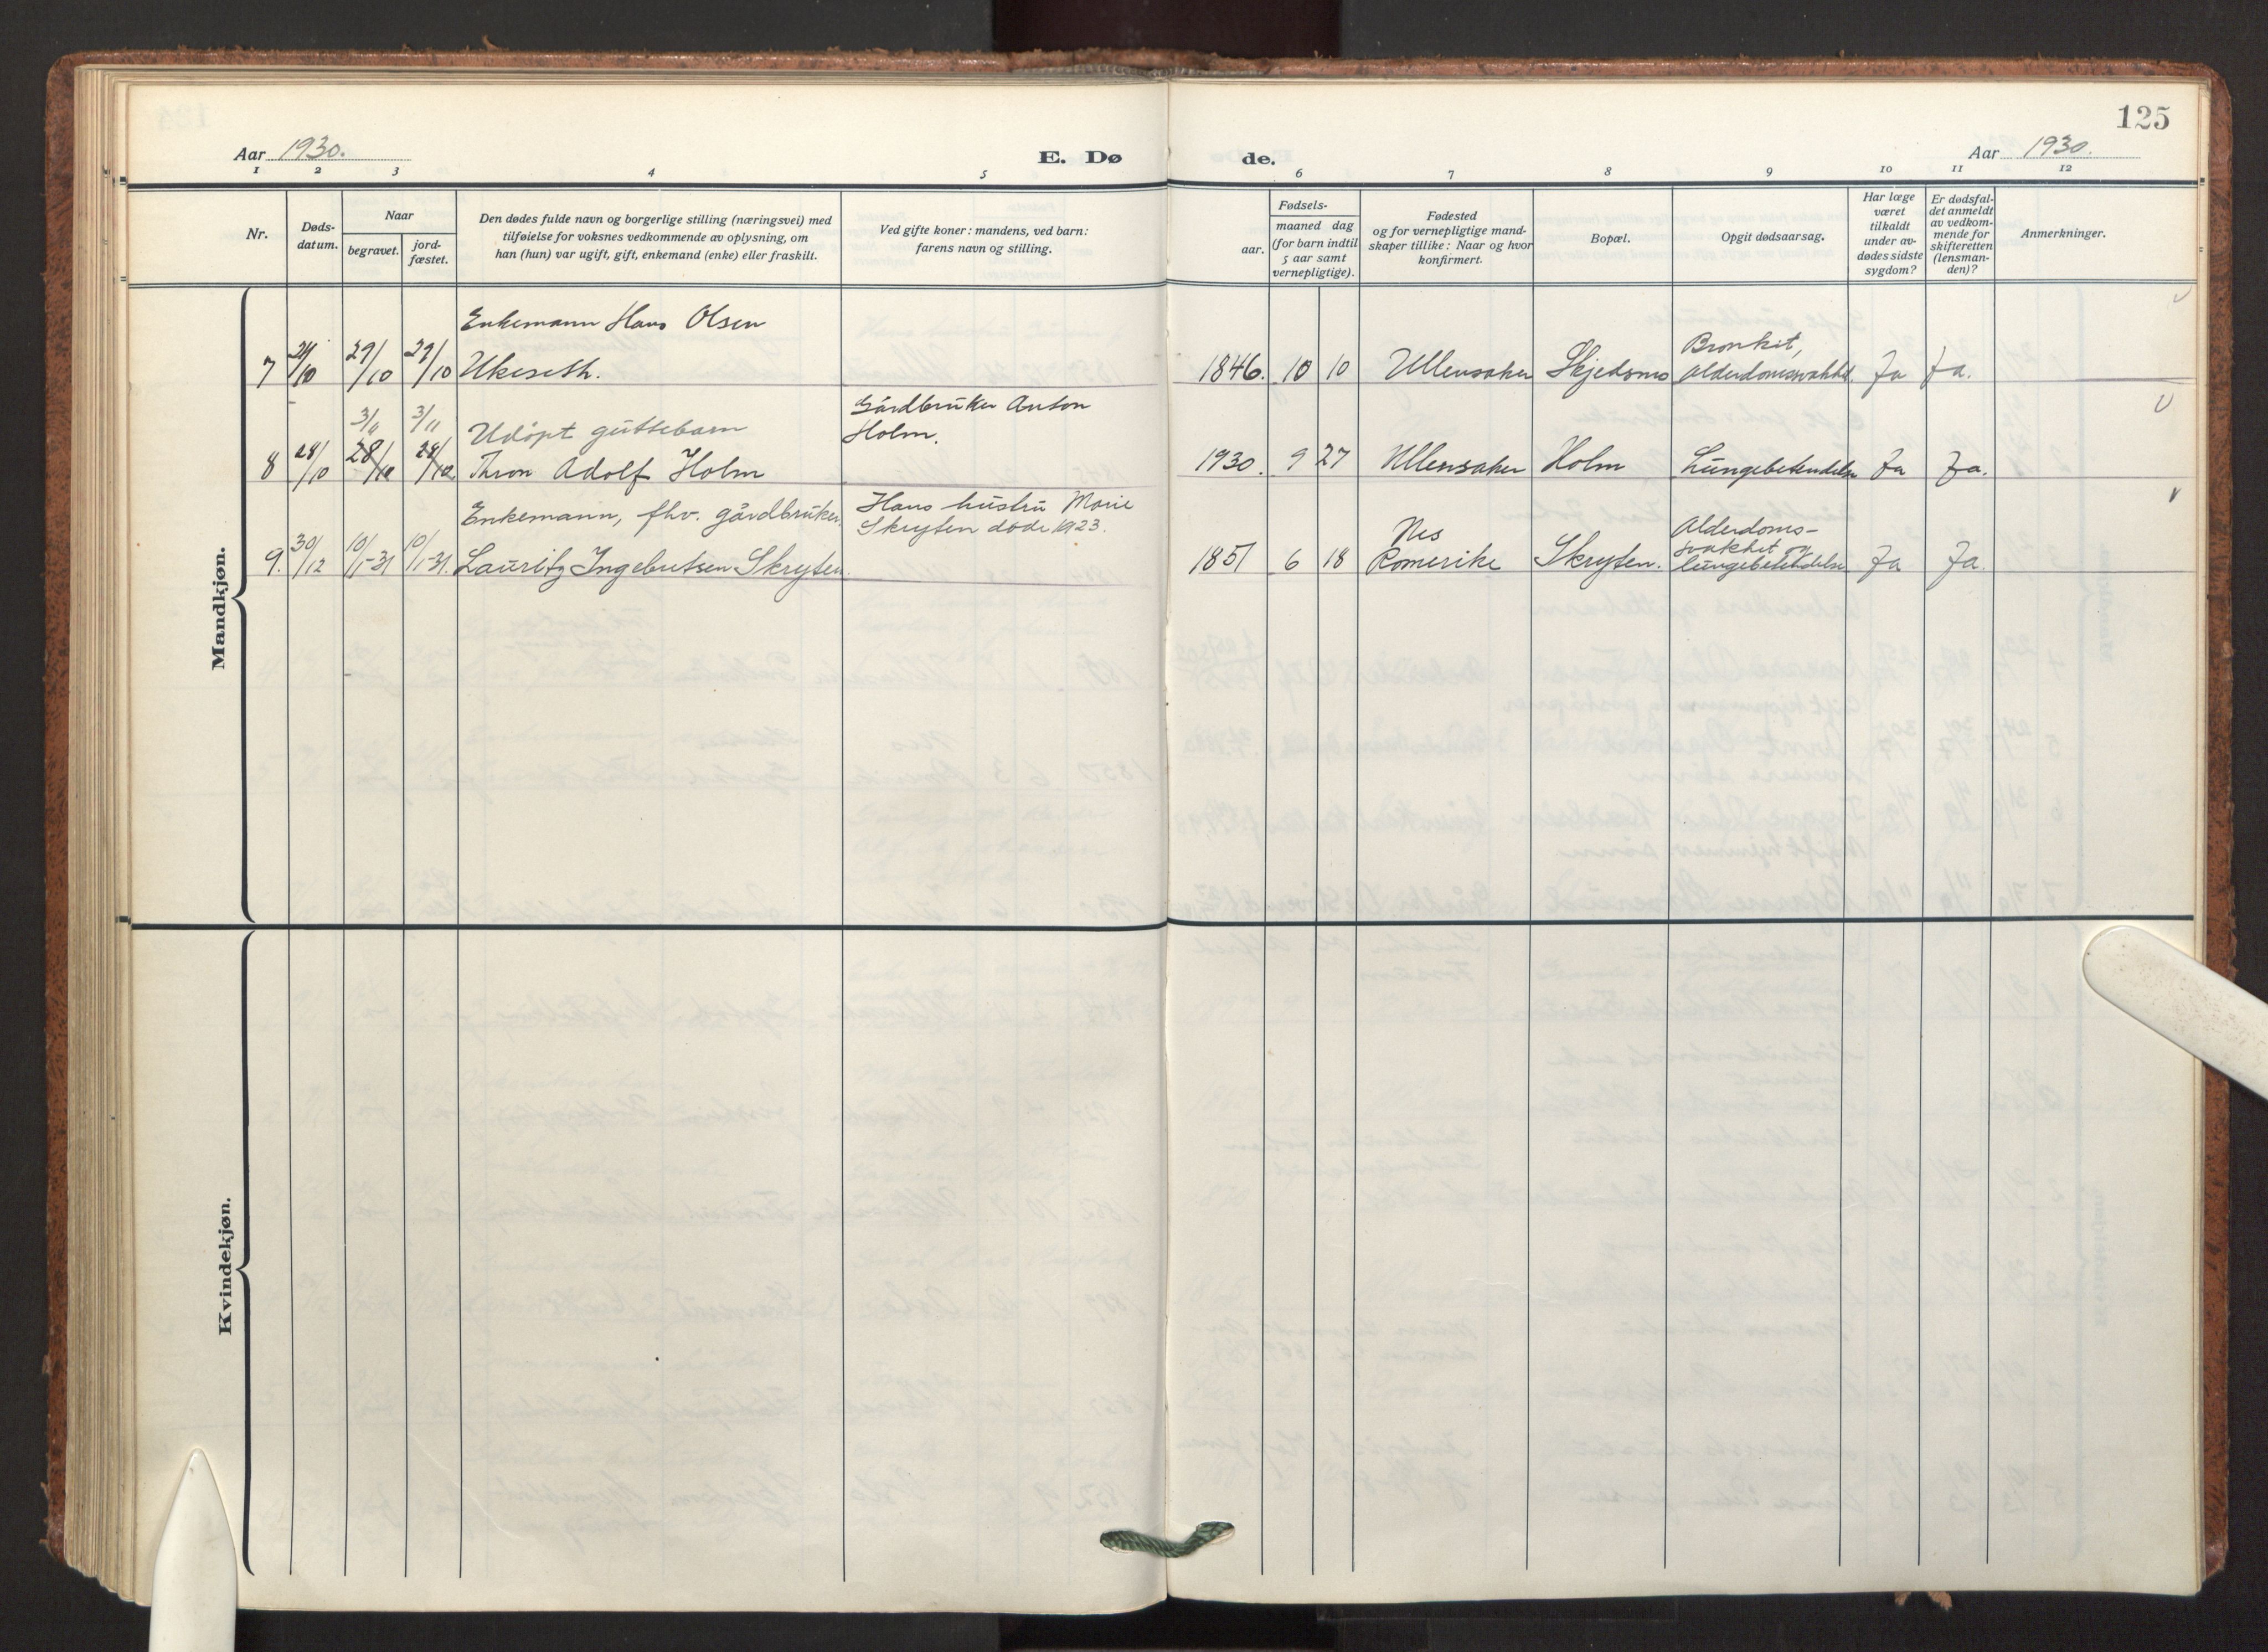 125
Aar 1930.
E. Dø
de.
Aar 1930.
1 2 3 4 5 6 7 8 9 10 11 12
Nr.
Døds-
datum.
Naar
begravet.
jord-
fæstet.
Den dødes fulde navn og borgerlige stilling (næringsvei) med
tilføielse for voksnes vedkommende av oplysning, om
han (hun) var ugift, gift, enkemand (enke) eller fraskilt.
Ved gifte koner: mandens, ved barn:
farens navn og stilling.
Fødsels-
aar.
maaned dag
(for barn indtil
5 aar samt
vernepligtige).
Fødested
og for vernepligtige mand-
skaper tillike: Naar og hvor
konfirmert.
Bopæl.
Opgit dødsaarsag.
Har læge
været
tilkaldt
under av-
dødes sidste
sygdom?
Er dødsfal-
det anmeldt
av vedkom-
mende for
skifteretten
(lensman-
den)?
Anmerkninger.
Mandkjøn.
Enkemann Hans Olsen
Bronkit,
7 24/10 29/10 29/10 Ukeseth. 1846. 10 10 Ullensaker Skjedsmo Ja Ja.
Gårdbruker Anton
3/11 3/11 Udöpt guttebarn Holm.
8 28/10 28/10 28/10 Thron Adolf Holm 1930. 9 27 Ullensaker Holm Lungebetendelse Ja Ja.
Enkemann, fhv. gårdbruker. Hans hustru Marie
Skrysten døde 1923.
Nes Alderdoms-
svakhet og
9. 30/12 10/1-31 10/1-31. Lauritz Ingebretsen Skrysten. 1851 6 18 Romerike Skrysten. lungebetendelse Ja Ja.
Kvindekjøn.